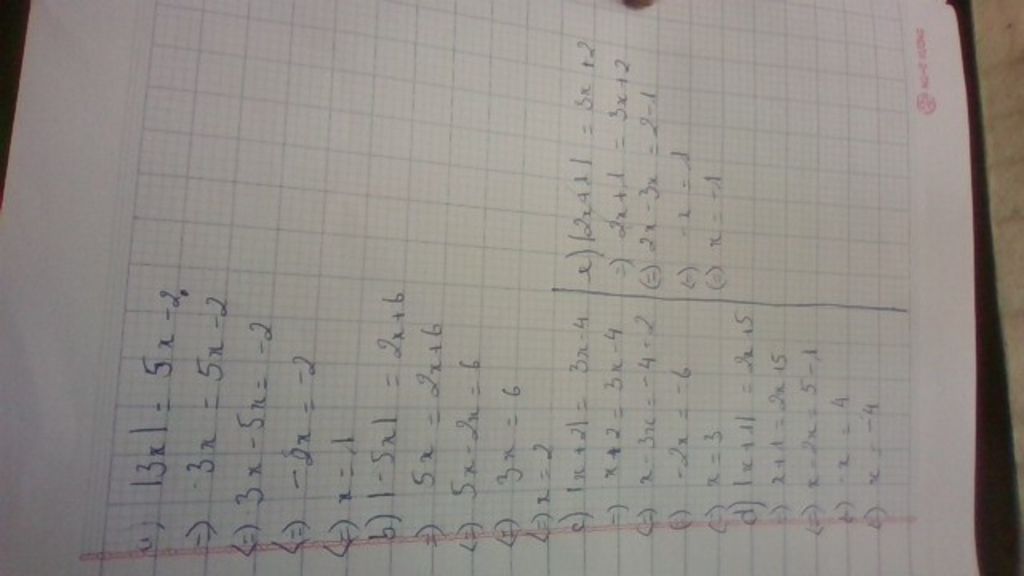 a) |3x| = 5x - 2
=) 3x = 5x - 2
(=) 3x - 5x = -2
(=) -2x = -2
(=) x = 1
b) |-5x| = 2x + 6
=) 5x = 2x + 6
(=) 5x - 2x = 6
(=) 3x = 6
(=) x = 2
c) |x + 2| = 3x - 4
=) x + 2 = 3x - 4
(=) x - 3x = -4 - 2
(=) -2x = -6
(=) x = 3
d) |x + 1| = 2x + 5
=) x + 1 = 2x + 5
(=) x - 2x = 5 - 1
(=) -x = 4
(=) x = -4
e) |2x + 1| = 3x + 2
=) 2x + 1 = 3x + 2
(=) 2x - 3x = 2 - 1
(=) -x = 1
(=) x = -1